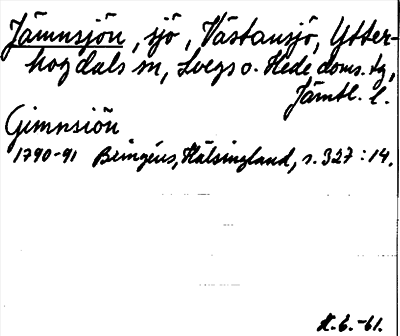 Jämnsjön, sjö, Västansjö, Ytter-
hogdals sn, Svegs o. Hede doms. tg,
Jämtl. l.
Gimnsiön
1790-91 Bringéus, Hälsingland, s. 327:14.
H.G.-61.